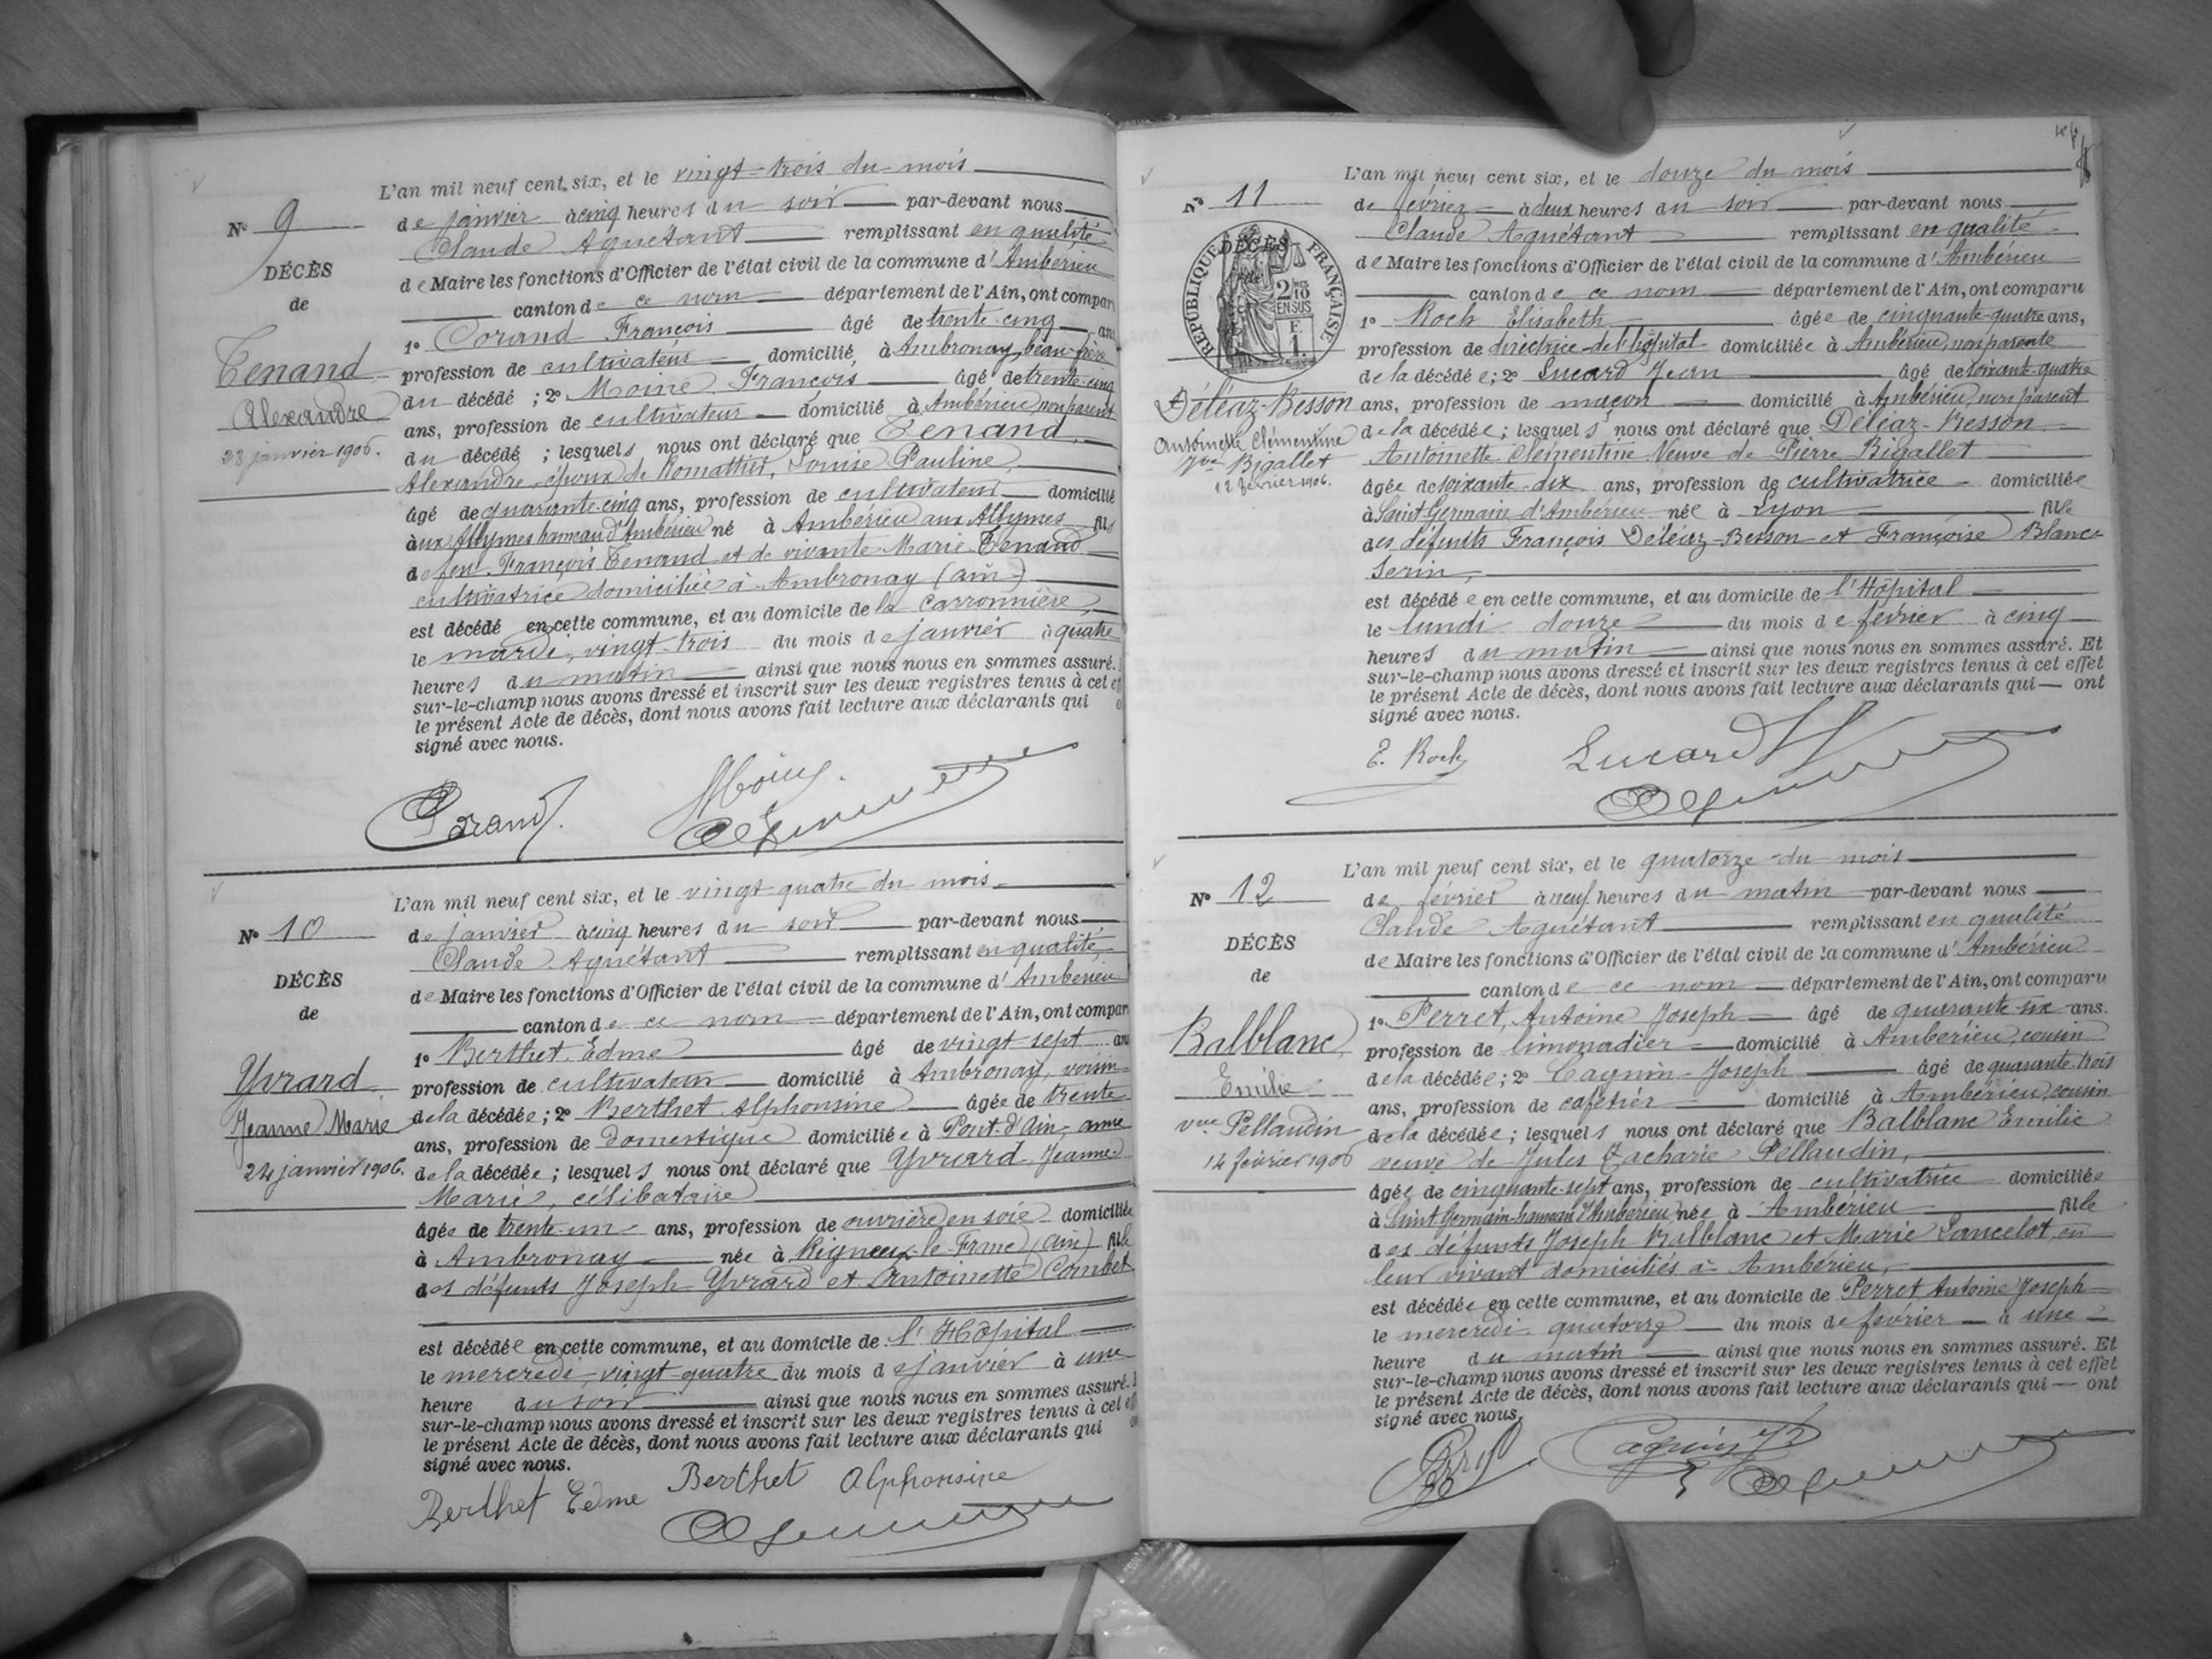 L'an mil neuf cent six, et le vingt-trois du mois
de janvier à cinq heures du soir par-devant nous
Claude Aguétant remplissant en qualité
de Maire les fonctions d'Officier de l'état civil de la commune d'Ambérieu
canton de ce nom département de l'Ain, ont comparu
1° Corand François âgé de trente-cinq ans
profession de cultivateur domicilié à Ambronay, beau-frère
du décédé ; 2° Moine François âgé de trente-cinq
ans, profession de cultivateur domicilié à Ambérieu, non parent
du décédé ; lesquels nous ont déclaré que Tenand
Alexandre, époux de Louise Pauline,
âgé de quarante-cinq ans, profession de cultivateur domicilié
aux Allymes hameau d'Ambérieu né à Ambérieu aux Allymes fils
de feu François Tenand et de vivante Marie Tenand
cultivatrice domiciliée à Ambronay (ain)
est décédé en cette commune, et au domicile de la Carronnière,
le mardi, vingt-trois du mois de janvier à quatre
heures du matin ainsi que nous nous en sommes assuré.
sur-le-champ nous avons dressé et inscrit sur les deux registres tenus à cet
le présent Acte de décès, dont nous avons fait lecture aux déclarants qui
signé avec nous.
Corand Moine
N° 9
DÉCÈS
de
Tenand
Alexandre
23 janvier 1906.
L'an mil neuf cent six, et le vingt-quatre du mois
de janvier à cinq heures du soir par-devant nous
Claude Aguétant remplissant en qualité
de Maire les fonctions d'Officier de l'état civil de la commune d'Ambérieu
canton de ce nom département de l'Ain, ont compar
1° Berthet Edme âgé de vingt-sept an
profession de cultivateur domicilié à Ambronay, voisin
de la décédée ; 2° Berthet Alphonsine âgée de trente
ans, profession de domestique domiciliée à Pont-d'Ain, amie
de la décédée ; lesquels nous ont déclaré que Yvrard Jeanne
Marie, célibataire
âgée de trente-un ans, profession de ouvrière en soie domiciliée
à Ambronay née à Rigneux-le-Franc (Ain) fille
des défunts Joseph Yvrard et Antoinette Combet
est décédée en cette commune, et au domicile de l'Hôpital
le mercredi vingt-quatre du mois de janvier à une
heure du soir ainsi que nous nous en sommes assuré.
sur-le-champ nous avons dressé et inscrit sur les deux registres tenus à cet
le présent Acte de décès, dont nous avons fait lecture aux déclarants qui
signé avec nous.
Berthet Edme Berthet Alphonsine
N° 10
DÉCÈS
de
Yvrard
Jeanne Marie
24 janvier 1906.
L'an mil neuf cent six, et le douze du mois
de février à deux heures du soir par-devant nous
Claude Aguétant remplissant en qualité
de Maire les fonctions d'Officier de l'état civil de la commune d'Ambérieu
canton de ce nom département de l'Ain, ont comparu
1° Roch Elisabeth âgée de cinquante-quatre ans,
profession de directrice de l'hôpital domiciliée à Ambérieu, non parente
de la décédée ; 2° Lucard Jean âgé de soixante-quatre
ans, profession de maçon domicilié à Ambérieu, non parent
de la décédée ; lesquels nous ont déclaré que Déléaz-Besson
Antoinette Clémentine Veuve de Pierre Bigallet
âgée de soixante-dix ans, profession de cultivatrice domiciliée
à Saint Germain d'Ambérieu née à Lyon fille
des défunts François Déléaz-Besson et Françoise Blanc-
Serin,
est décédée en cette commune, et au domicile de l'Hôpital
le lundi douze du mois de février à cinq
heures du matin ainsi que nous nous en sommes assuré. Et
sur-le-champ nous avons dressé et inscrit sur les deux registres tenus à cet effet
le présent Acte de décès, dont nous avons fait lecture aux déclarants qui ont
signé avec nous.
E. Roch Lucard
N° 11
DÉCÈS
RÉPUBLIQUE FRANÇAISE
2/10
EN SUS
F
1.
Déléaz-Besson
Antoinette Clémentine
Vve Bigallet
12 février 1906.
L'an mil neuf cent six, et le quatorze du mois
de février à neuf heures du matin par-devant nous
Claude Aguétant remplissant en qualité
de Maire les fonctions d'Officier de l'état civil de la commune d'Ambérieu
canton de ce nom département de l'Ain, ont comparu
1° Perret, Antoine Joseph âgé de quarante-six ans.
profession de limonadier domicilié à Ambérieu, cousin
de la décédée ; 2° Cagnin Joseph âgé de quarante-trois
ans, profession de cafetier domicilié à Ambérieu, cousin
de la décédée ; lesquels nous ont déclaré que Balblanc Emilie
veuve de Jules Zacharie Pellaudin,
âgée de cinquante-sept ans, profession de cultivatrice domiciliée
à Saint Germain hameau d'Ambérieu née à Ambérieu fille
des défunts Joseph Balblanc et Marie Lancelot, en
leur vivant domiciliés à Ambérieu,
est décédée en cette commune, et au domicile de Perret Antoine Joseph
le mercredi quatorze du mois de février à une
heure du matin ainsi que nous nous en sommes assuré. Et
sur-le-champ nous avons dressé et inscrit sur les deux registres tenus à cet effet
le présent Acte de décès, dont nous avons fait lecture aux déclarants qui ont
signé avec nous.
N° 12
DÉCÈS
de
Balblanc
Emilie
vve Pellaudin
14 février 1906